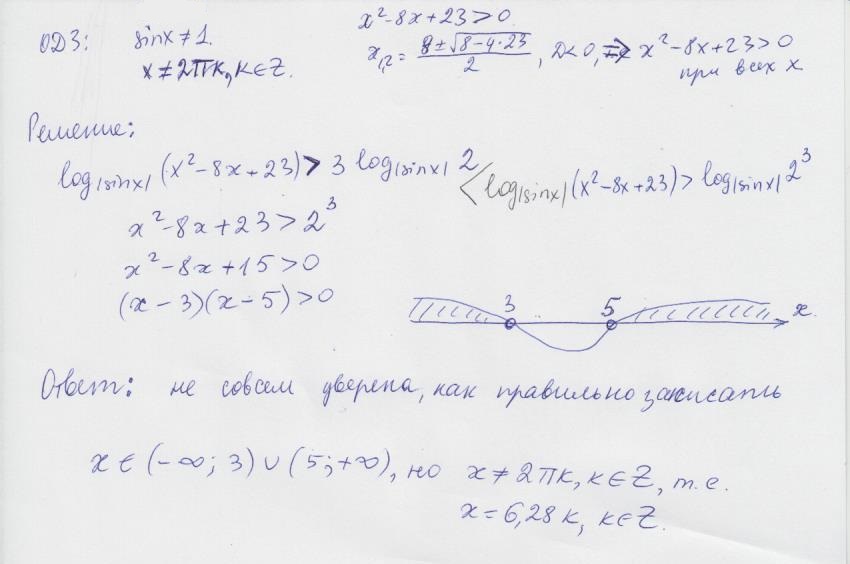 ОДЗ: sinx ≠ 1.
x ≠ 2πk, k ∈ Z.
x² - 8x + 23 > 0
x₁,₂ = (8 ± √(8 - 4·23))/2, D < 0, ⇒ x² - 8x + 23 > 0
при всех x
Решение:
log|sinx| (x² - 8x + 23) > 3 log|sinx| 2
log|sinx| (x² - 8x + 23) > log|sinx| 2³
x² - 8x + 23 > 2³
x² - 8x + 15 > 0
(x - 3)(x - 5) > 0
3 5 x
Ответ: не совсем уверена, как правильно записать
x ∈ (-∞; 3) ∪ (5; +∞), но x ≠ 2πk, k ∈ Z, т.е.
x = 6,28 k, k ∈ Z.